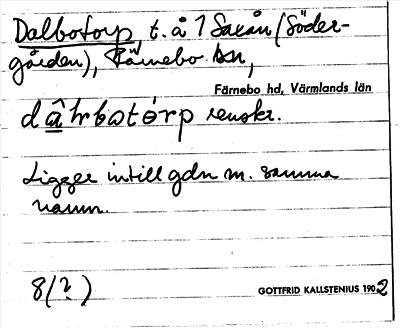 Dalbotorp, t. å 1 Saxån (Söder-
gården), Färnebo sn,
Färnebo hd, Värmlands län
dâlrbotórp renskr.
Ligger intill gdn m. samma
namn.
8(?)
GOTTFRID KALLSTENIUS 1902